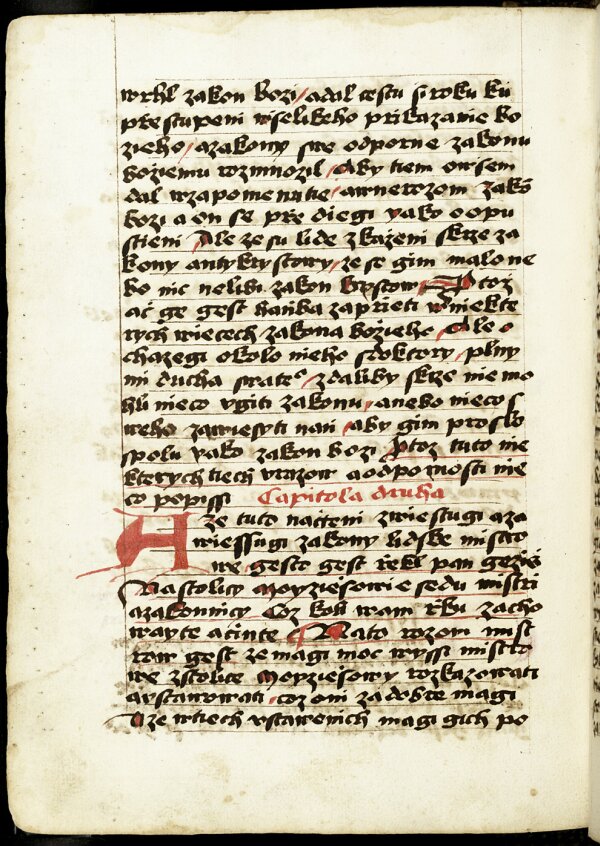 wrhl zakon bozi / a dal cestu siroku ku
přestupeni wselikeho přikazanie bo
zieho / a zakony swe odporne zakonu
božiemu rozmnozil / aby tiem owsem
dal w zapomenutie / a w nerozom zakō
bozi a on se přediegi yako o opu
stieni Ale ze su lide zkażeni skrze za
kony antykrystowy / ze se gim malo ne
bo nic nelibi zakon krystow Protoz
ač ge gest hańba zaprieti w niekte
rych wiecech zakona bozieho / Ale o
chazegi okolo nieho s doktory / plny
mi ducha swateº / zdaliby skrze nie mo
hli nieco vgiti zakonu / anebo nieco s
weho zawiesyti nań / aby gim prosslo
spolu yako zakon bozi Protoz tuto nie
kterych tiech vrazow a odpornosti nie
co popissi Capitola druha
A ze tuto načteni zwiestugi a za
wiessugi zakony lidske mistro
we gesto gest řekl pan gezis
Na stolicy moyziesowie sedu mistri
a zakonnicy Coz koli wam rku zacho
wayte a čiňte Na to rozom mist
row gest ze magi moc wyssi mistro
we z stolice moyziesowy rozkazowati
a vstawowati / coz oni za dobre magi
A ze w tiech vstawenich magi gich po